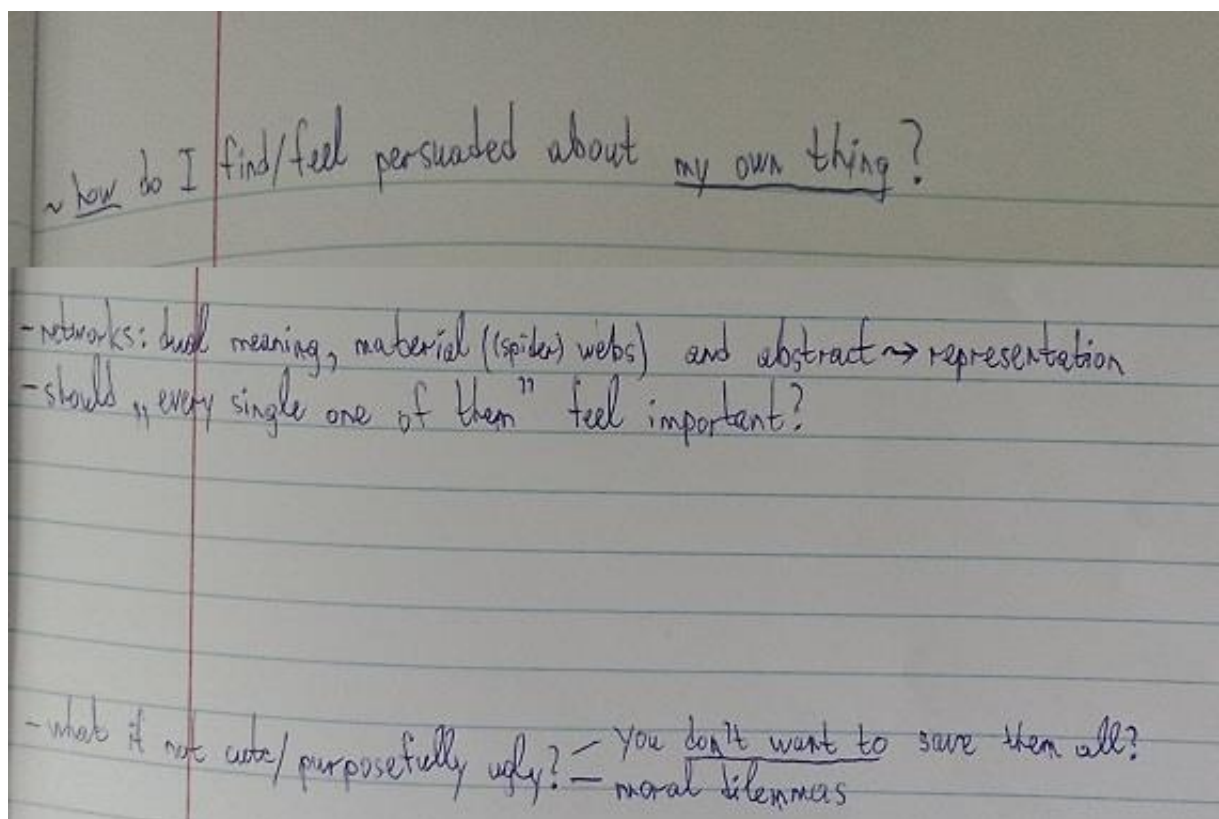 ~ how do I find/feel persuaded about my own thing?
- networks: dual meaning, material ((spider) webs) and abstract → representation
- should „every single one of them” feel important?
- what if not cute/purposefully ugly? – you don't want to save them all?
– moral dilemmas